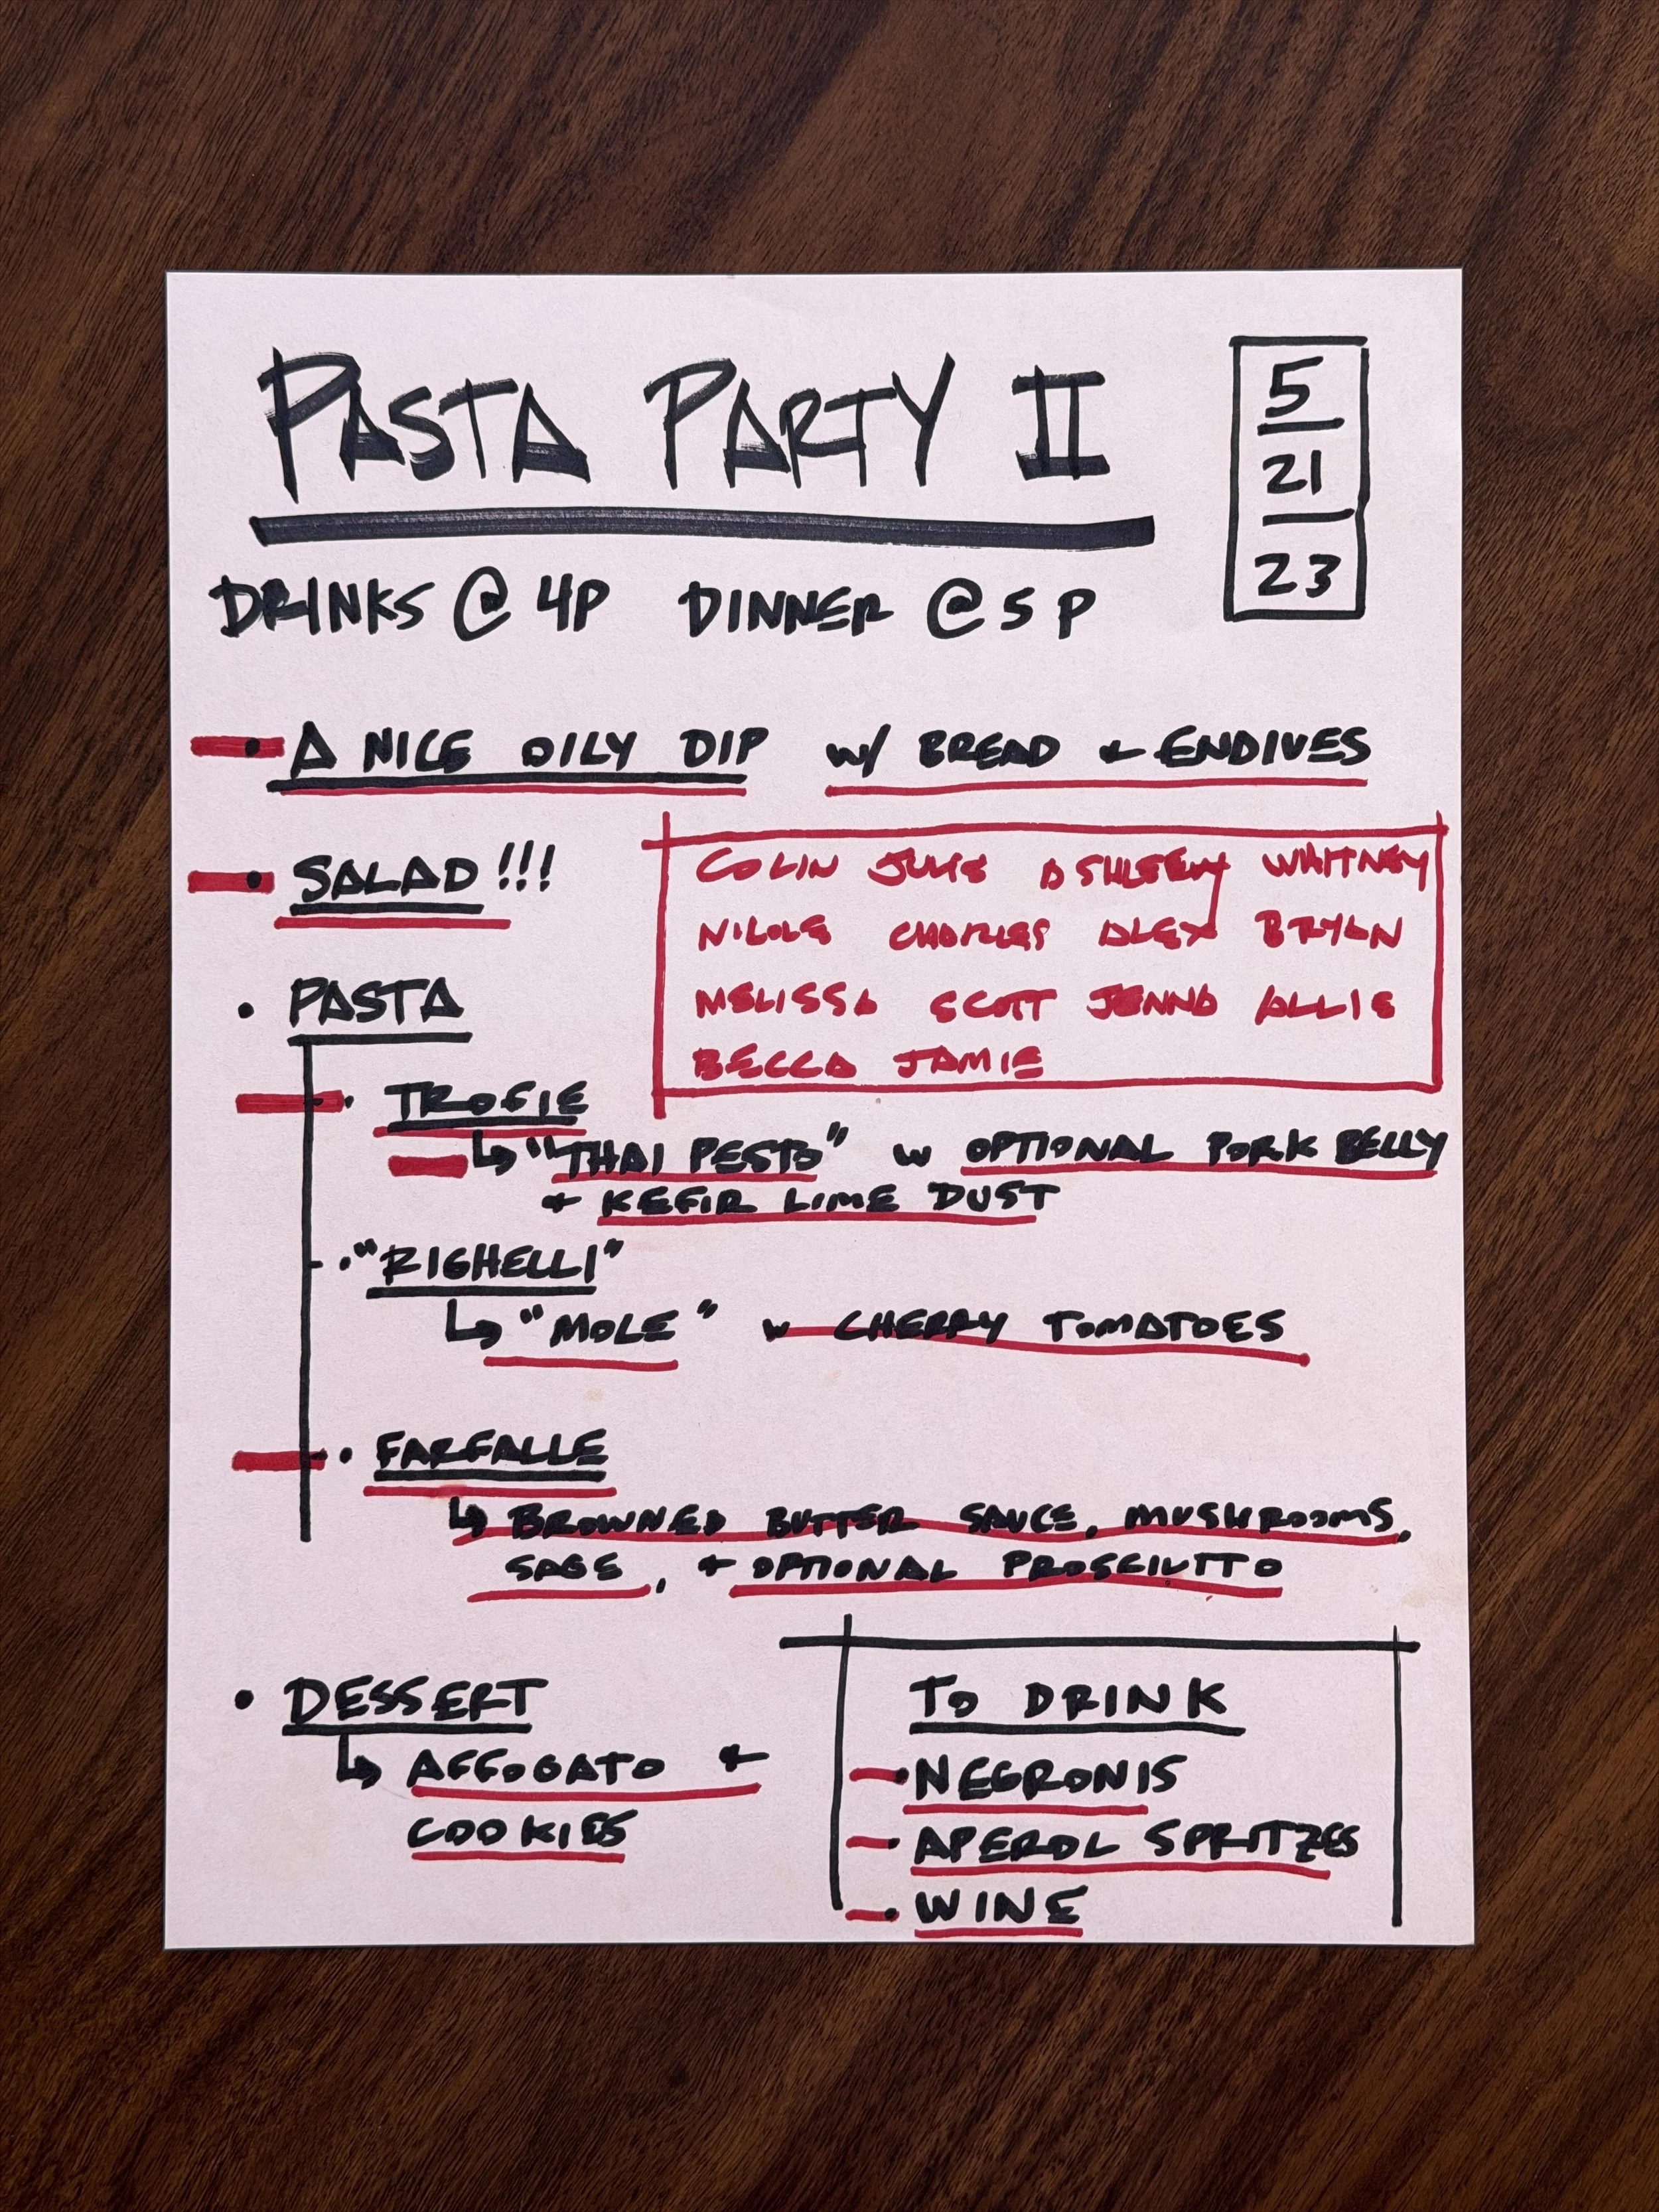 PASTA PARTY II
5
21
23
DRINKS @ 4P DINNER @ 5P
• A NICE OILY DIP w/ BREAD + ENDIVES
• SALAD!!!
COLIN JULIE ASHLEEY WHITNEY
NICOLE CHARLES ALEX BRYAN
MELISSA SCOTT JENNA ALLIE
BECCA JAMIE
• PASTA
• TROFIE
↳ "THAI PESTO" w OPTIONAL PORK BELLY
+ KEFIR LIME DUST
• "RIGHELLI"
↳ "MOLE" w CHERRY TOMATOES
• FARFALLE
↳ BROWNED BUTTER SAUCE, MUSHROOMS,
SAGE, + OPTIONAL PROSCIUTTO
• DESSERT
↳ AFFOGATO +
COOKIES
TO DRINK
• NEGRONIS
• APEROL SPRITZES
• WINE